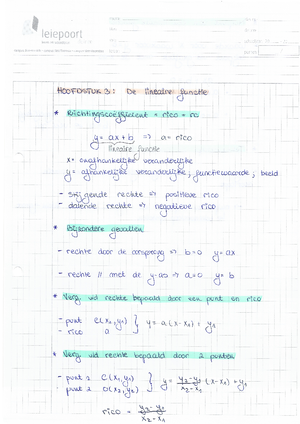 leiepoort
HOOFDSTUK 3: De lineaire functie
* Richtingscoëfficiënt = rico = rc
y = ax + b => a = rico
lineaire functie
x = onafhankelijke veranderlijke
y = afhankelijke veranderlijke, functiewaarde, beeld
- stijgende rechte => positieve rico
- dalende rechte => negatieve rico
* Bijzondere gevallen
- rechte door de oorsprong => b=0 y=ax
- rechte // met de y-as => a=0 y=b
* Verg. vd rechte bepaald door een punt en rico
- punt C(x₁,y₁)
- rico a } y = a(x-x₁) + y₁
* Verg. vd rechte bepaald door 2 punten
- punt 1 C(x₁,y₁)
- punt 2 D(x₂,y₂) } y = y₂-y₁/x₂-x₁ · (x-x₁)+y₁
rico = y₂-y₁/x₂-x₁